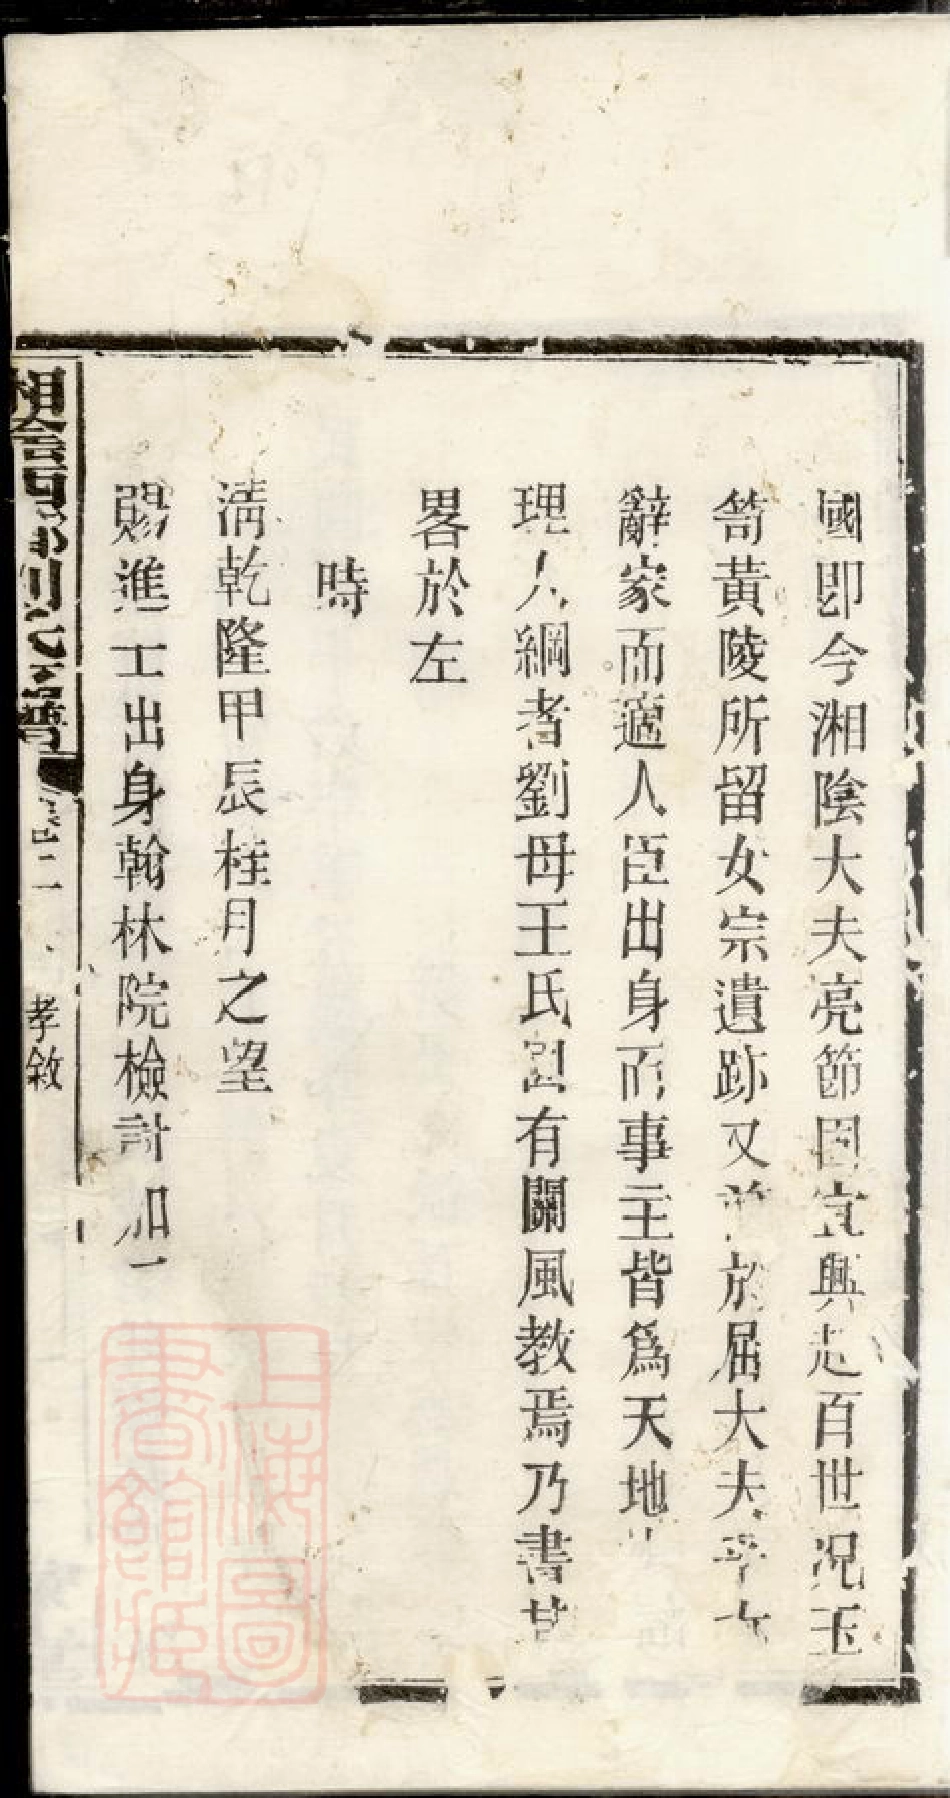 國即今湘陰大夫亮節固宜興起百世况玉
笥黃陵所留女宗遺跡又並於屈大夫乎女
辭家而適人臣出身而事主皆爲天地
理人綱者劉母王氏固有關風教焉乃書其
畧於左
時
淸乾隆甲辰桂月之望
賜進士出身翰林院檢討加一
湘陰 劉氏 譜 卷二 孝敘
上海圖
書館藏